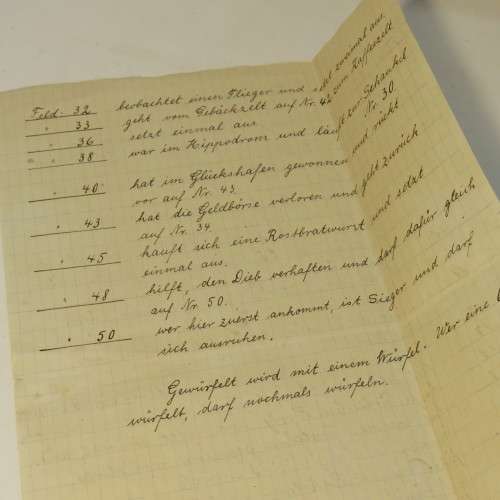 Feld: 32 beobachtet einen Flieger und setzt zweimal aus.
" 33 geht vom Gebäckzelt auf Nr. 42 zum Kaffeezelt
" 36 setzt einmal aus
" 38 war im Hippodrom und läuft zur Schaukel
Nr. 30.
" 40 hat im Glückshafen gewonnen und rückt
vor auf Nr. 43.
" 43 hat die Geldbörse verloren und geht zurück
auf Nr. 34.
" 45 kauft sich eine Rostbratwurst und setzt
einmal aus.
" 48 hilft, den Dieb verhaften und darf dafür gleich
auf Nr. 50.
" 50 wer hier zuerst ankommt, ist Sieger und darf
sich ausruhen.
Gewürfelt wird mit einem Würfel. Wer eine
würfelt, darf nochmals würfeln.